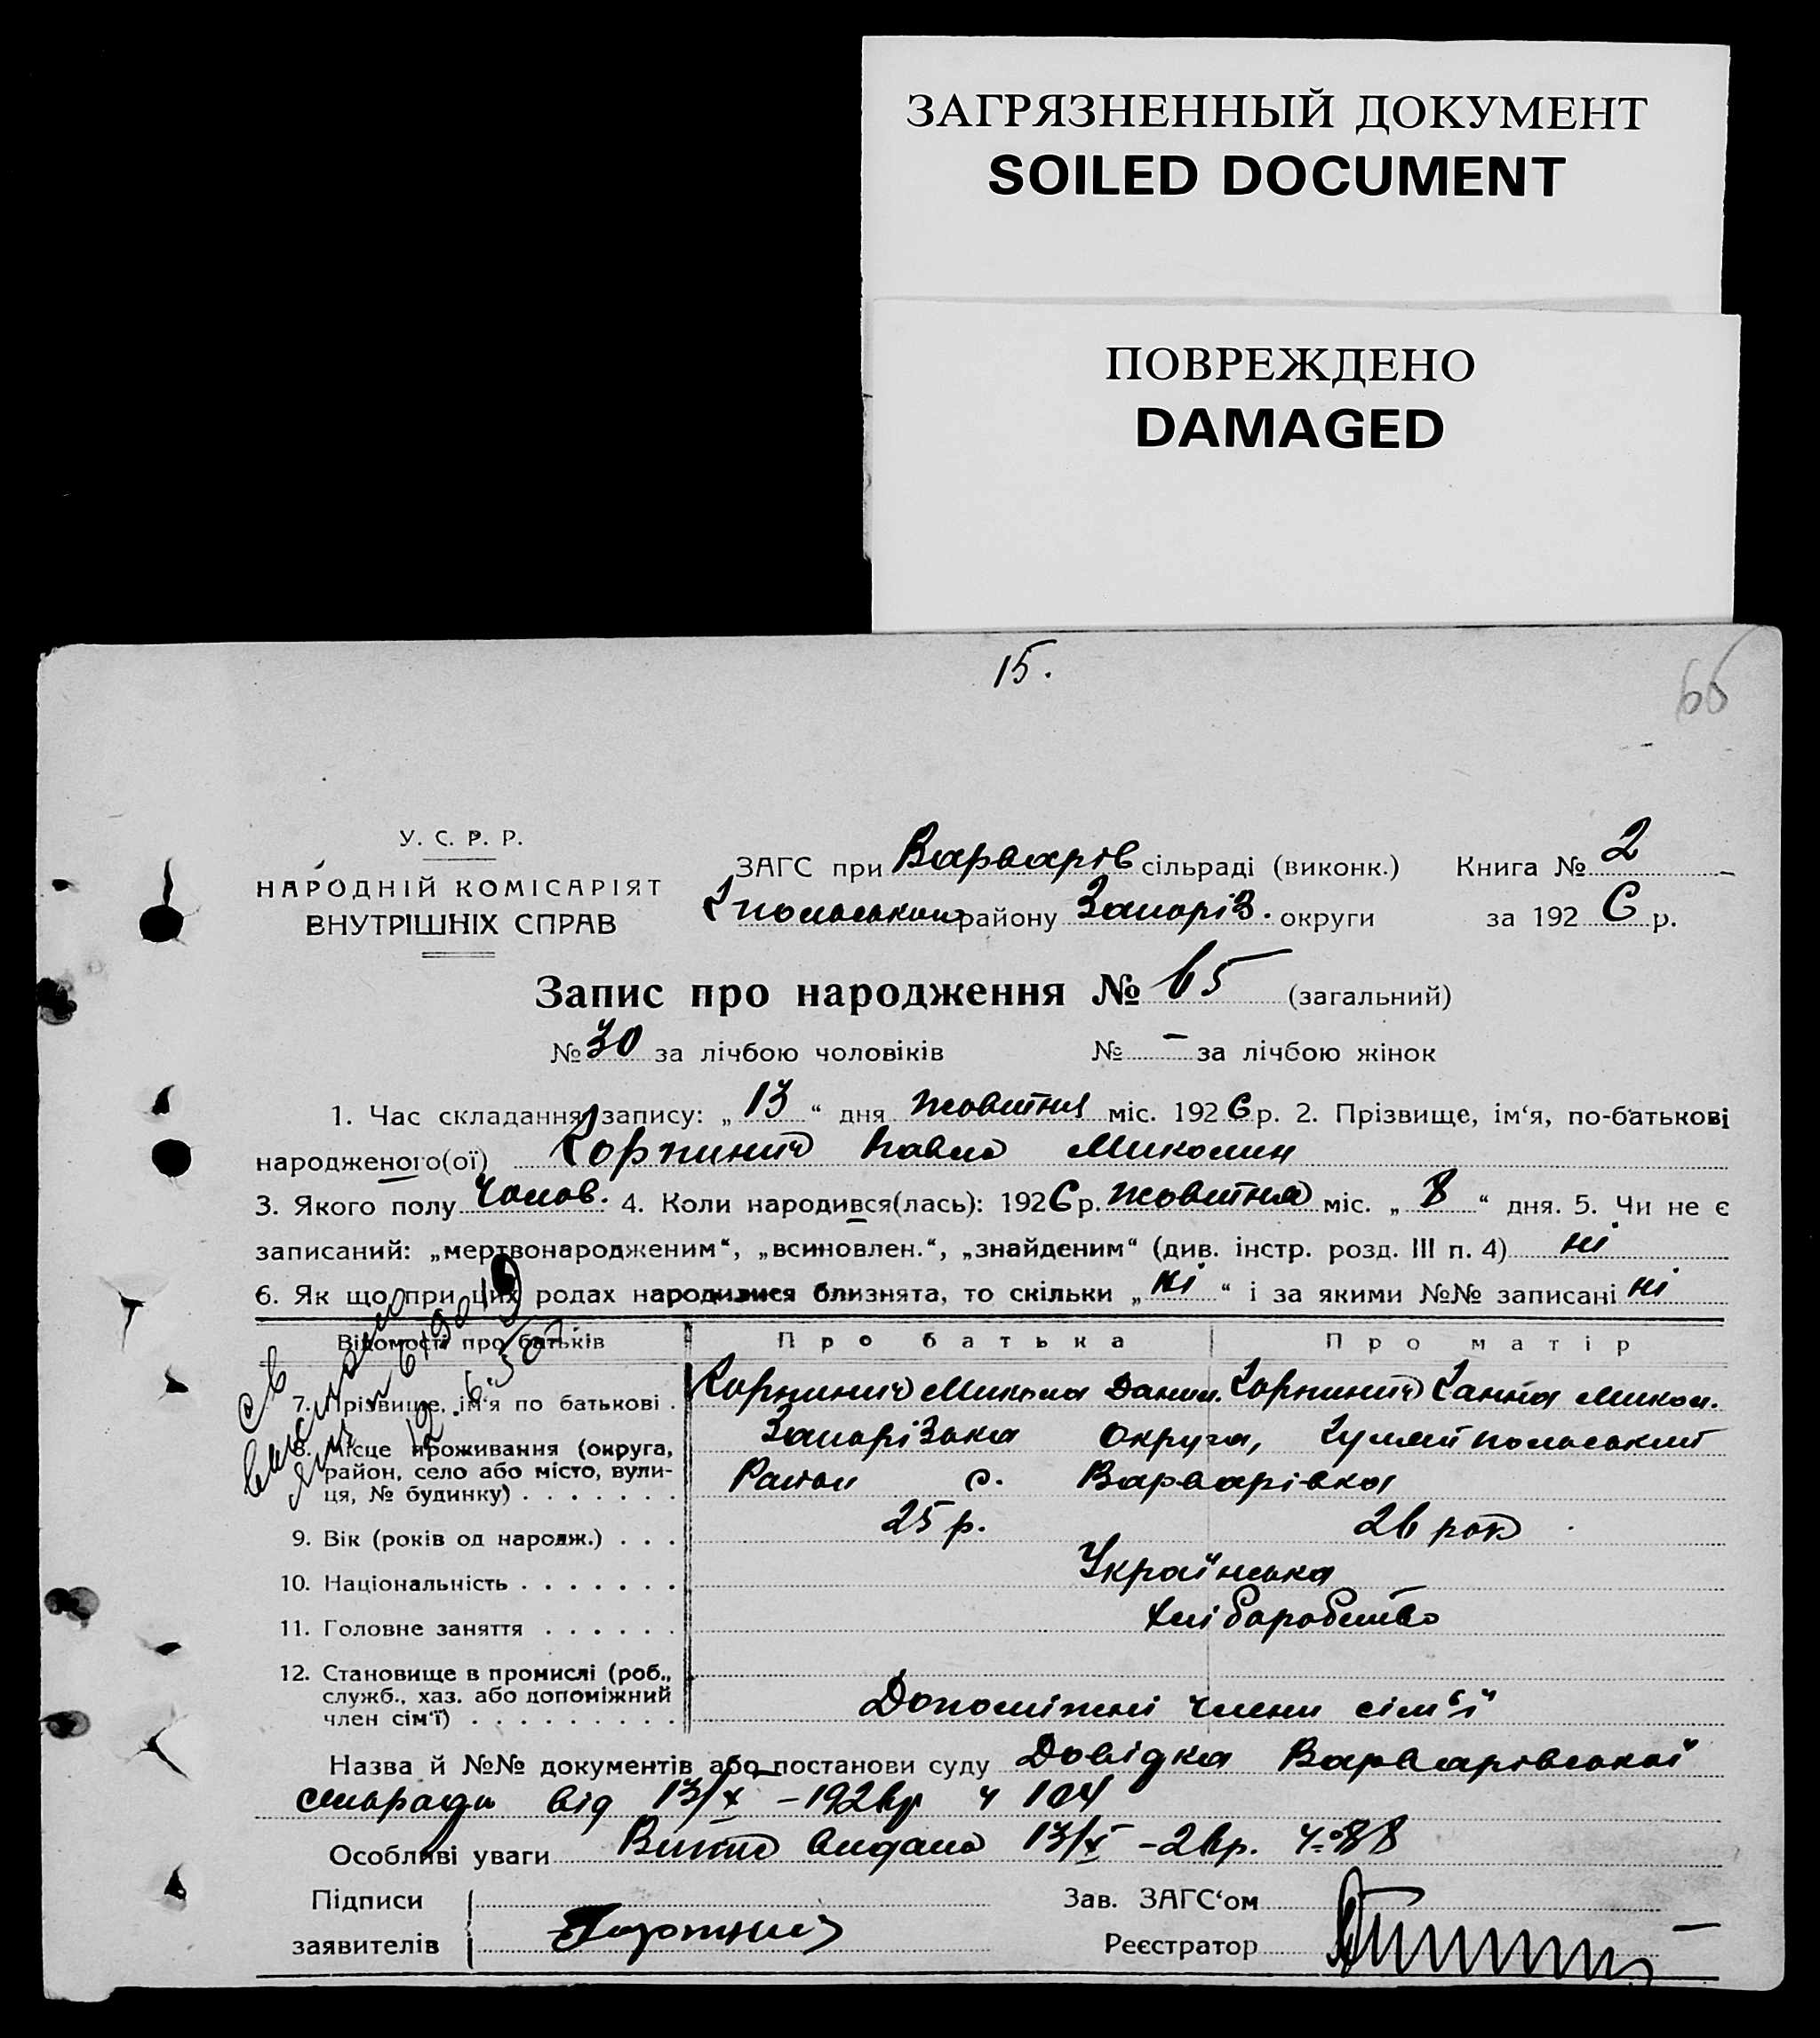 ЗАГРЯЗНЕННЫЙ ДОКУМЕНТ
SOILED DOCUMENT
ПОВРЕЖДЕНО
DAMAGED
15.
66
У. С. Р. Р.
НАРОДНІЙ КОМІСАРІЯТ
ВНУТРІШНІХ СПРАВ
ЗАГС при Варварів сільраді (виконк.) Книга № 2
району Запоріз. округи за 1926 р.
Запис про народження № 65 (загальний)
№ 30 за лічбою чоловіків № – за лічбою жінок
1. Час складання запису: „ 13 “ дня жовтня міс. 1926 р. 2. Прізвище, ім‘я, по-батькові
народженого(ої) Павло Миколин
3. Якого полу Чолов. 4. Коли народився(лась): 1926 р. жовтня міс. „ 8 “ дня. 5. Чи не є
записаний: „мертвонародженим“, „всиновлен.“, „знайденим“ (див. інстр. розд. III п. 4) ні
6. Як що при цих родах народилися близнята, то скільки „ ні “ і за якими №№ записані ні
Відомості про батьків Про батька Про матір
7. Прізвище, ім‘я по батькові . Микола Данил. Ганна Микол.
8. Місце проживання (округа, район, село або місто, вулиця, № будинку) . . . . . . . Запорізька округа, Гуляйпольський
Район с. Варварівка
9. Вік (років од народж.) . . . 25 р. 26 рок
10. Національність . . . . . . . Українська
11. Головне заняття . . . . . . Хліборобство
12. Становище в промислі (роб., служб., хаз. або допоміжний член сім‘ї) . . . . . . . . . Допоміжні члени сім‘ї
Назва й №№ документів або постанови суду Довідка Варварівської
сільради від 13/X – 1926 р ч 104
Особливі уваги Витяг видано 13/X – 26 р. ч. 88
Підписи
заявителів
Зав. ЗАГС‘ом
Реєстратор